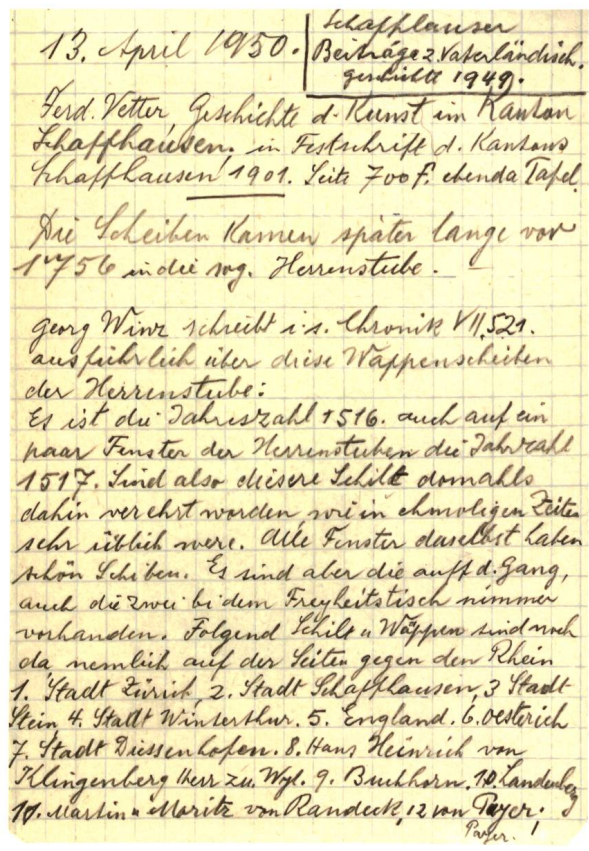 13. April 1950.
Schaffhauser
Beiträge z. Vaterländisch.
geschichte 1949.
Ferd. Vetter Geschichte d. Kunst im Kanton
Schaffhausen, in Festschrift d. Kantons
Schaffhausen 1901. Seite 700 f. ebenda Tafel.
Die Scheiben kamen später lange vor
1756 in die sog. Herrenstube.
Georg Winz schreibt i. s. Chronik VII, 521.
ausführlich über diese Wappenscheiben
der Herrenstube:
Es ist die Jahreszahl 1516. auch auf ein
paar Fenster der Herrenstuben die Jahrzahl
1517. Sind also diesere Schilt domahls
dahin verehrt worden, wie in ehmoligen Zeiten
sehr üblich were. Alle Fenster daselbst haben
schön Schiben. Es sind aber die auff d. Gang,
auch die zwei bi dem Freyheitstisch nimmer
vorhanden. Folgend Schilt u Wappen sind noch
da nemlich auf der Seiten gegen den Rhein
1. Stadt Zürich, 2. Stadt Schaffhausen, 3 Stadt
Stein 4. Statt Winterthur. 5. England. 6. Oesterich
7. Stadt Diessenhofen. 8. Hans Heinrich von
Klingenberg Herr zu Wyl. 9. Buchhorn. 10. Landenberg
11. Martin u Moritz von Randeck, 12 von Payer.
Payer. !